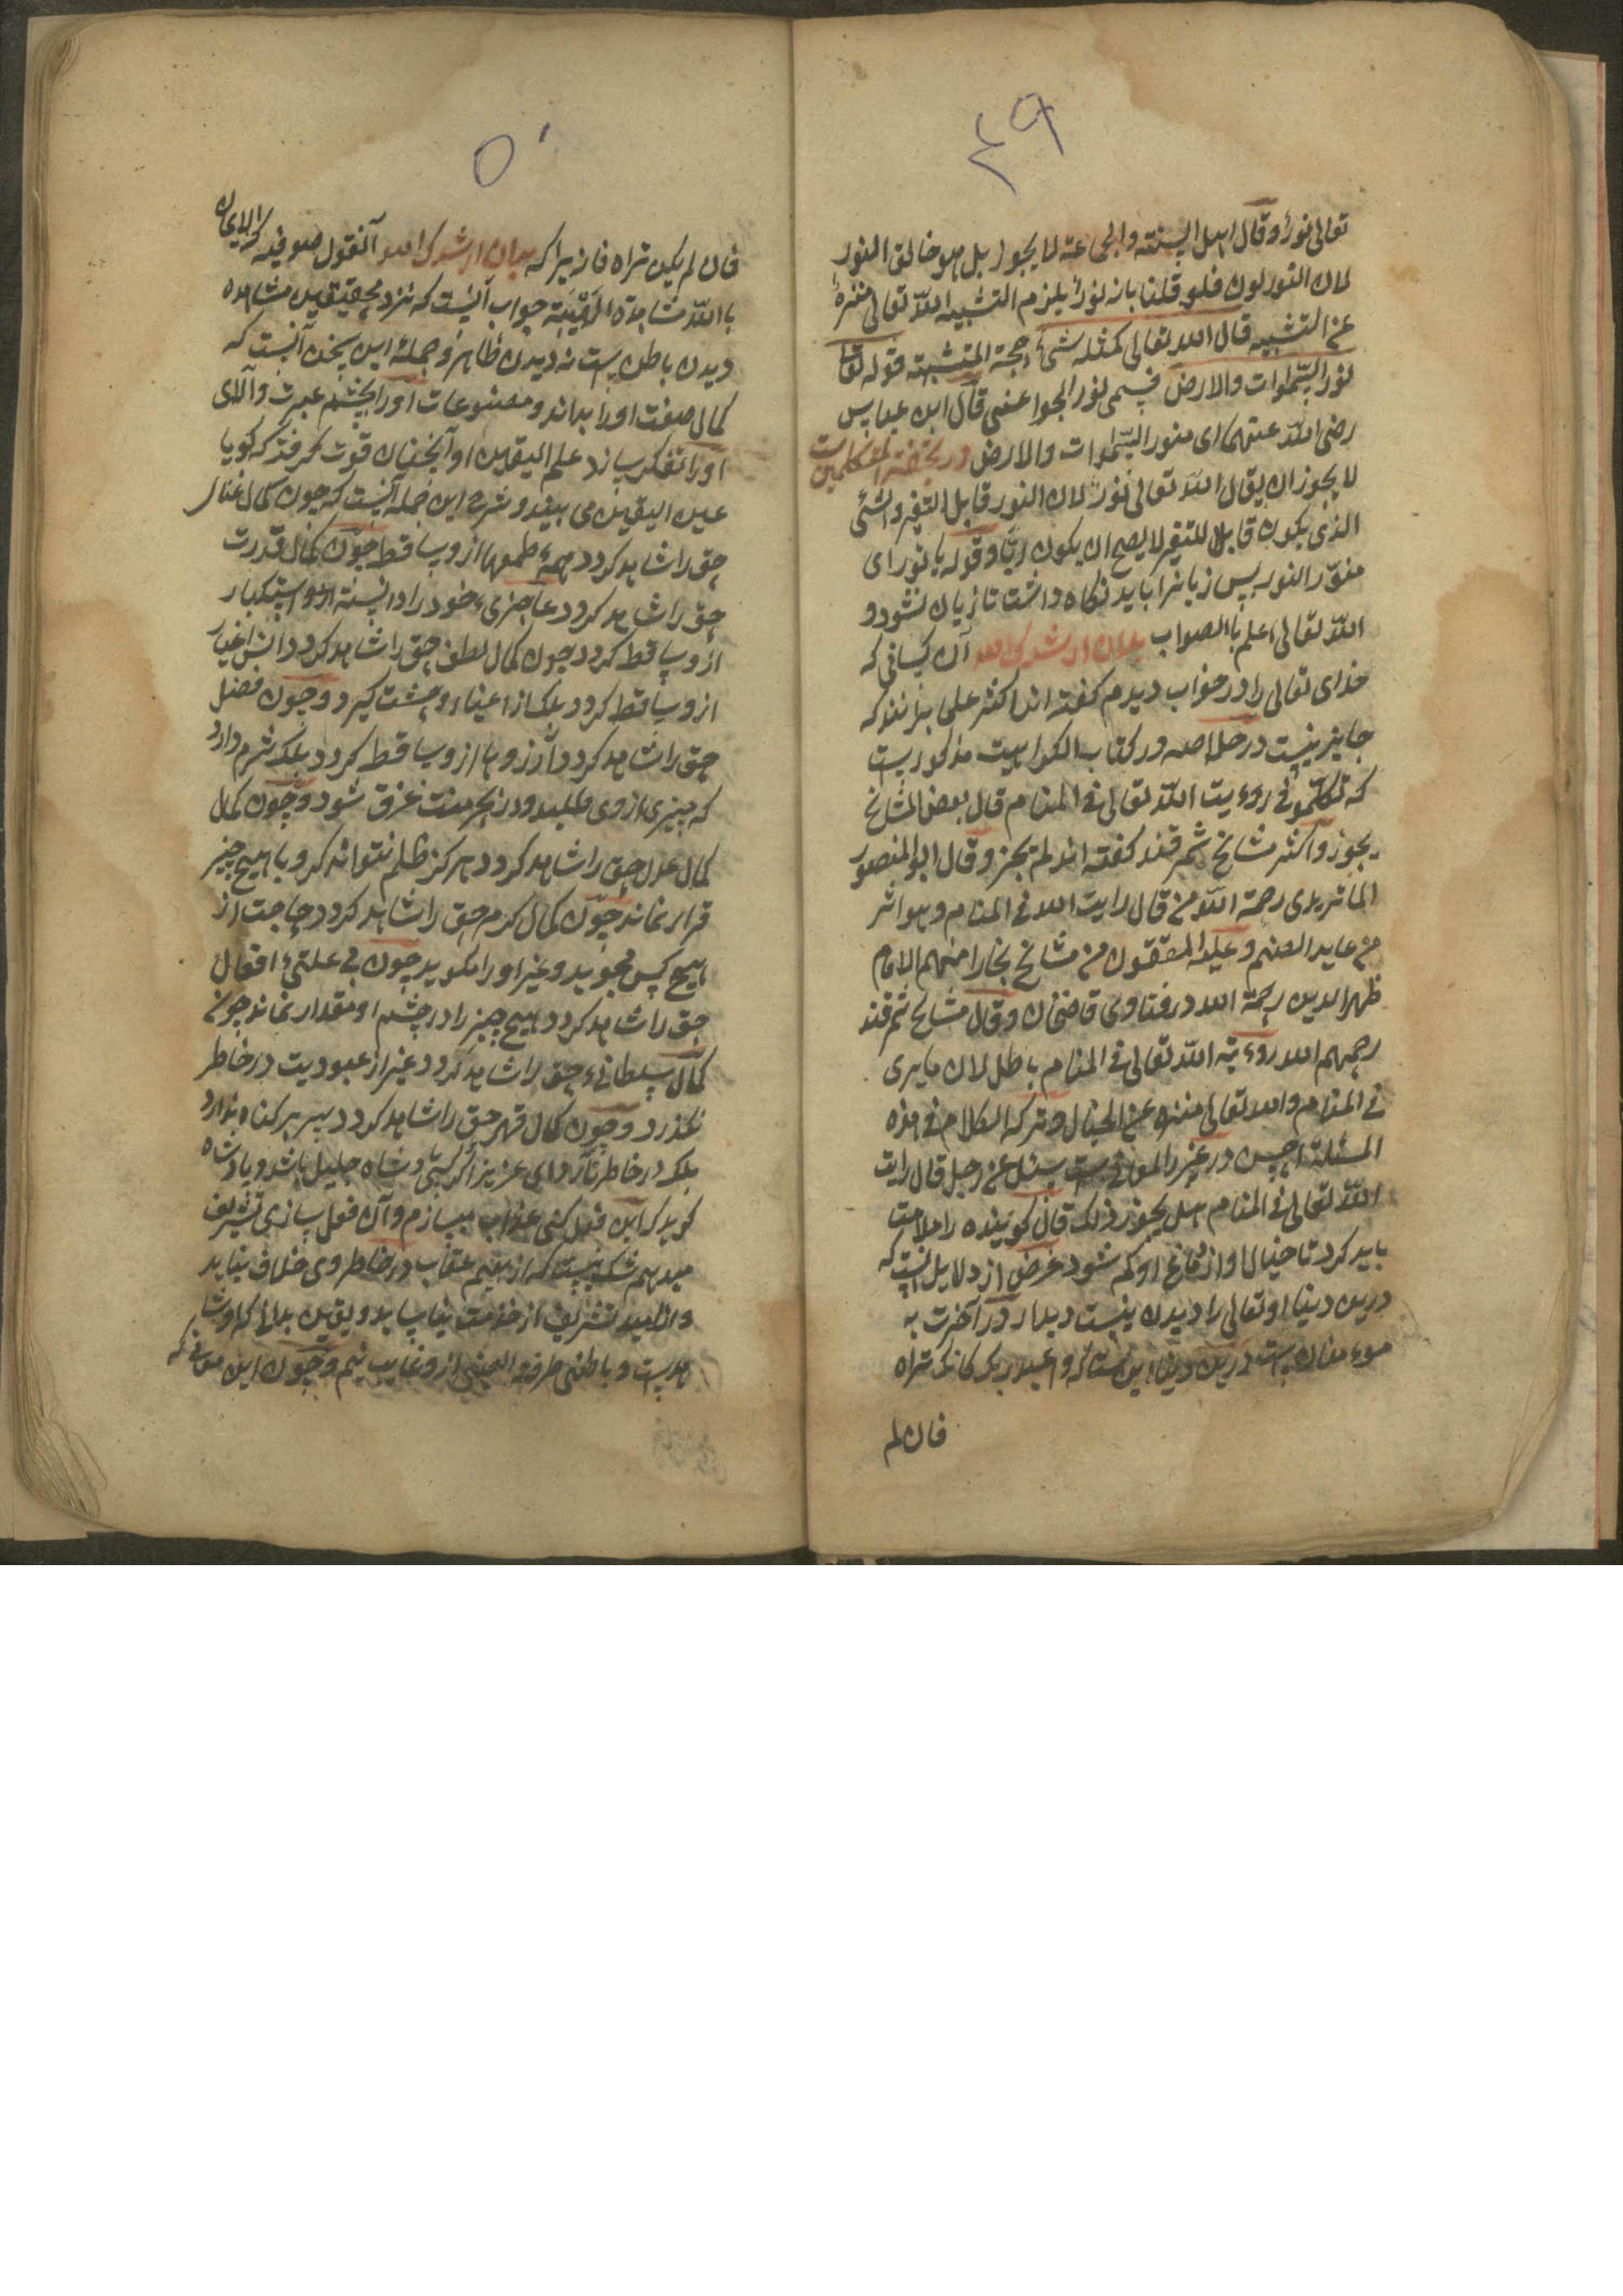 ٤٩
تعالی نورا وقال اهل السنته والجماعته لا یجوز بل هو خالق النور
لان النور لون فلو قلنا بانه نورا یلزم التشبیه الله تعالی منزه
عن التشبیه قال الله تعالی کمثله شیء حجة المتشبهته قوله تعا
نور السموات والارض فسمی نور الجوا عنی قال ابن عباس
رضی الله عنهما ای منور السموات والارض در تحفة المتکلمین ست
لا یجوز ان یقال الله تعالی نور لان النور قابل التغیر والشئی
الذی یکون قابلا للتغیر لا یصح ان یکون ربا وقوله یا نور ای
منور النور پس زبانرا باید نکاه داشت تا زیان نشود و
الله تعالی اعلم باالصواب بدان ارشدک الله آن کسانی که
خدای تعالی را در خواب دیدم کفته اند اکثر علی برانند که
جایز نیست در خلاصه در کتاب الکراهیت مذکوریست
که تکلمو فی روءیت الله تعالی فی المنام قال بعض المشایخ
یجوز واکثر مشایخ ثمرقند کفته اند لم یجز وقال ابو المنصور
الماتریدی رحمة الله من قال رایت الله فی المنام وهو اشر
من عابد الصنم وعلیه المحققون من مشایخ بخارا منهم الامام
ظهر الدین رحمة الله در فتاوی قاضیخان وقال مشایخ ثمرقند
رحمهم الله روءیة الله تعالی فی المنام باطل لان ما یری
فی المنام والله تعالی منزه عن الخیال وترکه الکلام فی هذه
المسئلة احسن در المعانی ست سئل عن رجل قال رایت
الله تعالی فی المنام هل یجوز ذلک قال کوینده را ملامت
باید کرد تا خیال او از دماغ او کم شود غرض از دلایل آنست که
درین دنیا او تعالی را دیدن نیست دیدار در آخرت به
موءمنان ست درین دنیا این ستکه واعبد ربک کانک تراه
فان لم
٥٠
فان لم یکن تراه فانه یراکه بدان ارشدک الله آنقول صوفیه که الایمان
باالله مشاهدة جواب آنیست که نزد محققین مشاهده
دیدن باطن ست نه دیدن ظاهر وجملهٔ این سخن آنست که
کمال صفت اورا بداند ومصنوعات اورا بچشم عبرت والای
اورا تفکر سازد علم الیقین او آنچنان قوت کرفت که کویا
عین الیقین می بیند وشرح این جمله آنیست که چون کمال غنای
حق را شاهد کردد همهٔ طمعها از وساقط چون کمال قدرت
حق را شاهد کردد عاجزیء خود را دانسته او استکبار
از وساقط کردد چون کمال لطف حق را شاهد کردد انس اغیار
از وساقط کردد بلک از اغیار وحشت کیرد وچون فضل
حق را شاهد کردد آرزوها از وساقط کردد بلک شرم دارد
که چیزی از وی طلبد ودر بحر منت غرق شود وچون کمال
کمال عدل حق را شاهد کردد هرکز ظلم نتواند کرد وبا هیچ چیز
قرار نماند چون کمال کرم حق را شاهد کردد حاجت از
هیچ کس نجوید وغیر اورا نکوید چون بی علتیء افعال
حق را شاهد کردد هیچ چیز را در چشم او مقدار نماند چون
کمال سلطانیء حق را شاهد کردد غیر از عبودیت در خاطر
نکذرد وچون کمال قهر حق را شاهد کردد سر بر کناه ندارد
بلک در خاطر نآرد ای عزیز اکر کسی دشاه جلیل باشد وپادشاه
کوید که این فعل کنی عذاب میسازم وآن فعل سازی تشریف
میدهم شک نیست که از بیم عقاب در خاطر وی خلاف نیاید
واز امید تشریف از خدمت نیاساید ویقین بداند که اوشا
هدست وباطنی طرفة العینی از وغایب نیم وچون این معانی که